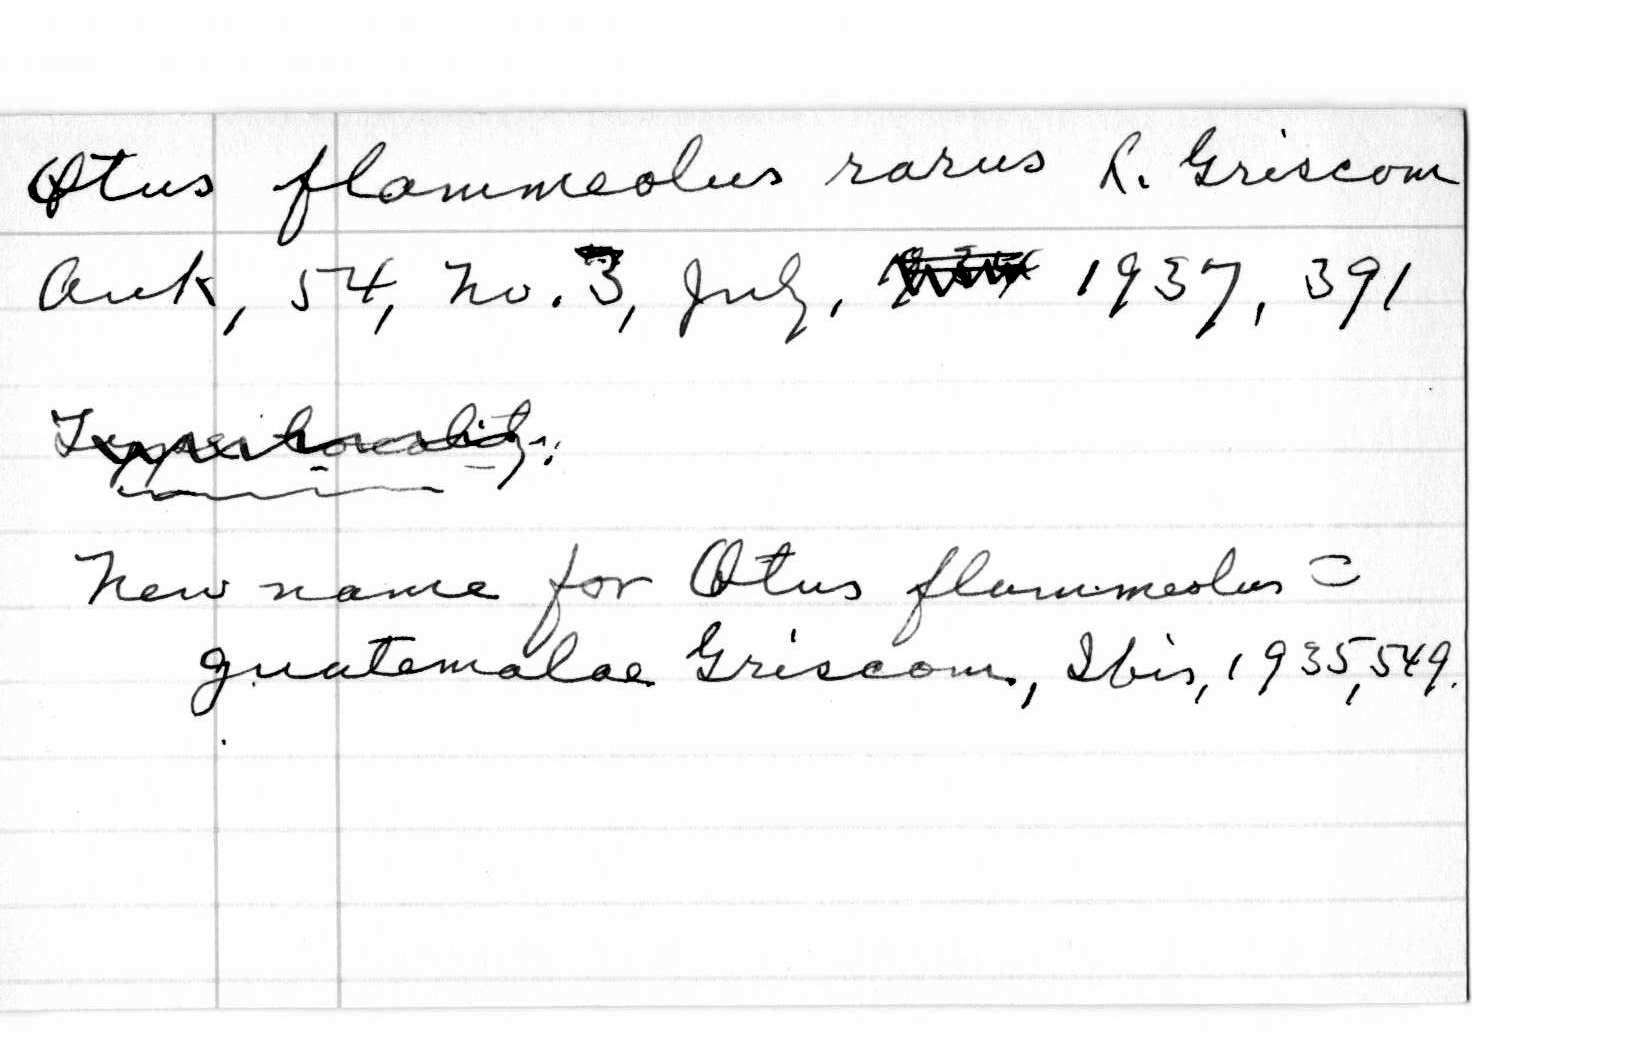 Otus flammeolus rarus L. Griscom
Auk, 54, No. 3, July, 1937, 391
Type locality:
New name for Otus flammeolus =
guatemalae Griscom, Ibis, 1935, 549.